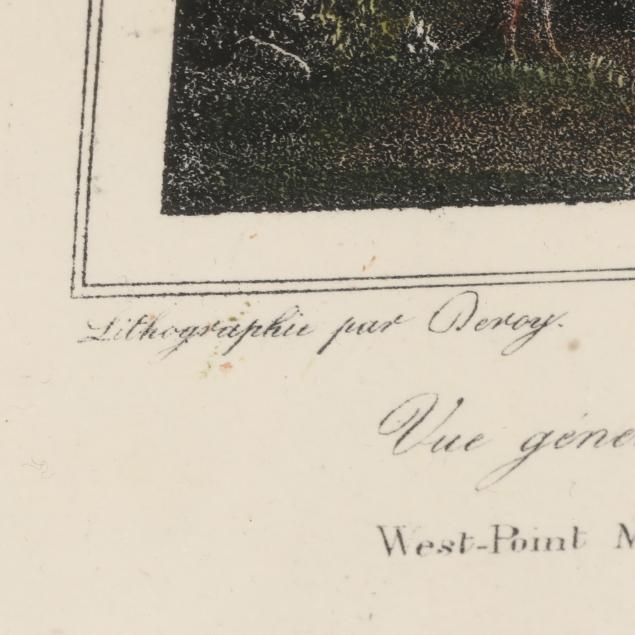 Lithographie par Deroy.
Vue géné
West-Point M